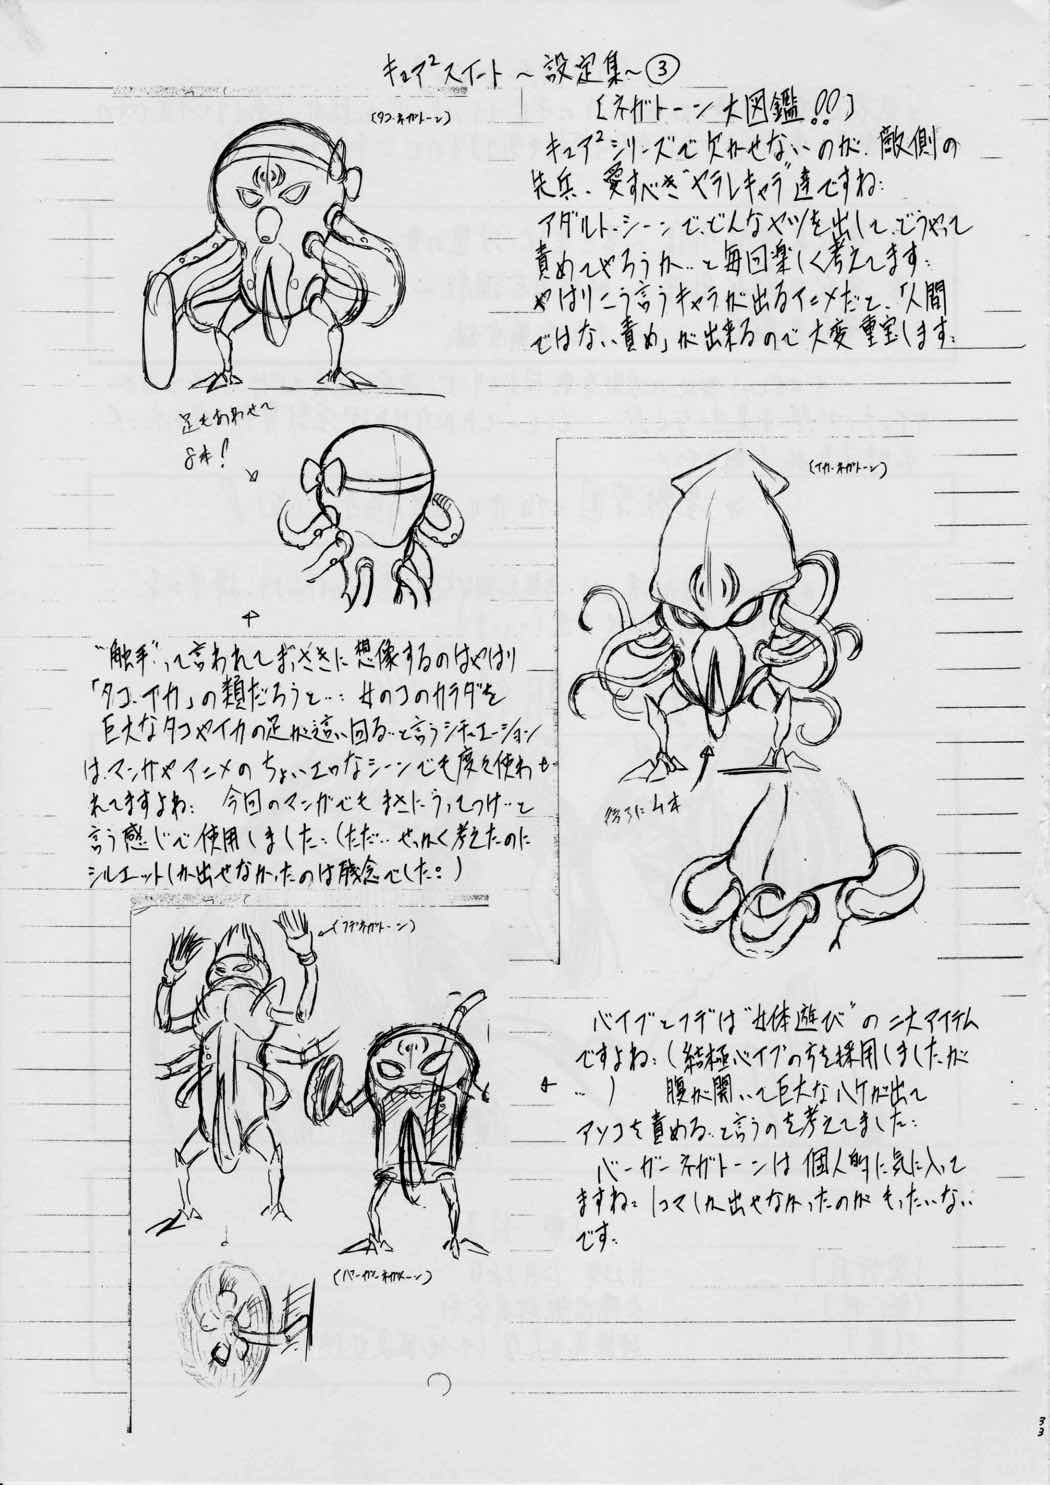 キュア²スイート ～設定集～③
(タコ・ネガトーン)
〔ネガトーン大図鑑!!〕
キュア²シリーズで欠かせないのが、敵側の
先兵、愛すべき"ヤラレキャラ"達ですね。
アダルト・シーンで、どんなヤツを出して、どうやって
責めてやろうか…と毎回楽しく考えてます。
やはりこう言うキャラが出るアニメだと、「人間
ではない責め」が出来るので大変重宝します。
足もあわせて
8本!
(イカ・ネガトーン)
"触手"って言われてまっさきに想像するのはやはり
「タコ、イカ」の類だろうと…。女のコのカラダを
巨大なタコやイカの足が這い回る…と言うシチュエーション
は、マンガやアニメのちょいエロなシーンでも度々使わ
れてますよね。今回のマンガでもまさにうってつけ…と
言う感じで使用しました。(ただ…せっかく考えたのに
シルエットしか出せなかったのは残念でした。)
(フデ・ネガトーン)
バイブとフデは"女体遊び"の二大アイテム
ですよね。(結極バイブの方を採用しましたが
…) 腹が開いて巨大なハケが出て
アソコを責める…と言うのを考えてました。
バーガーネガトーンは個人的に気に入って
ますね。1コマしか出せなかったのがもったいない
です。
(バーガー・ネガトーン)
33